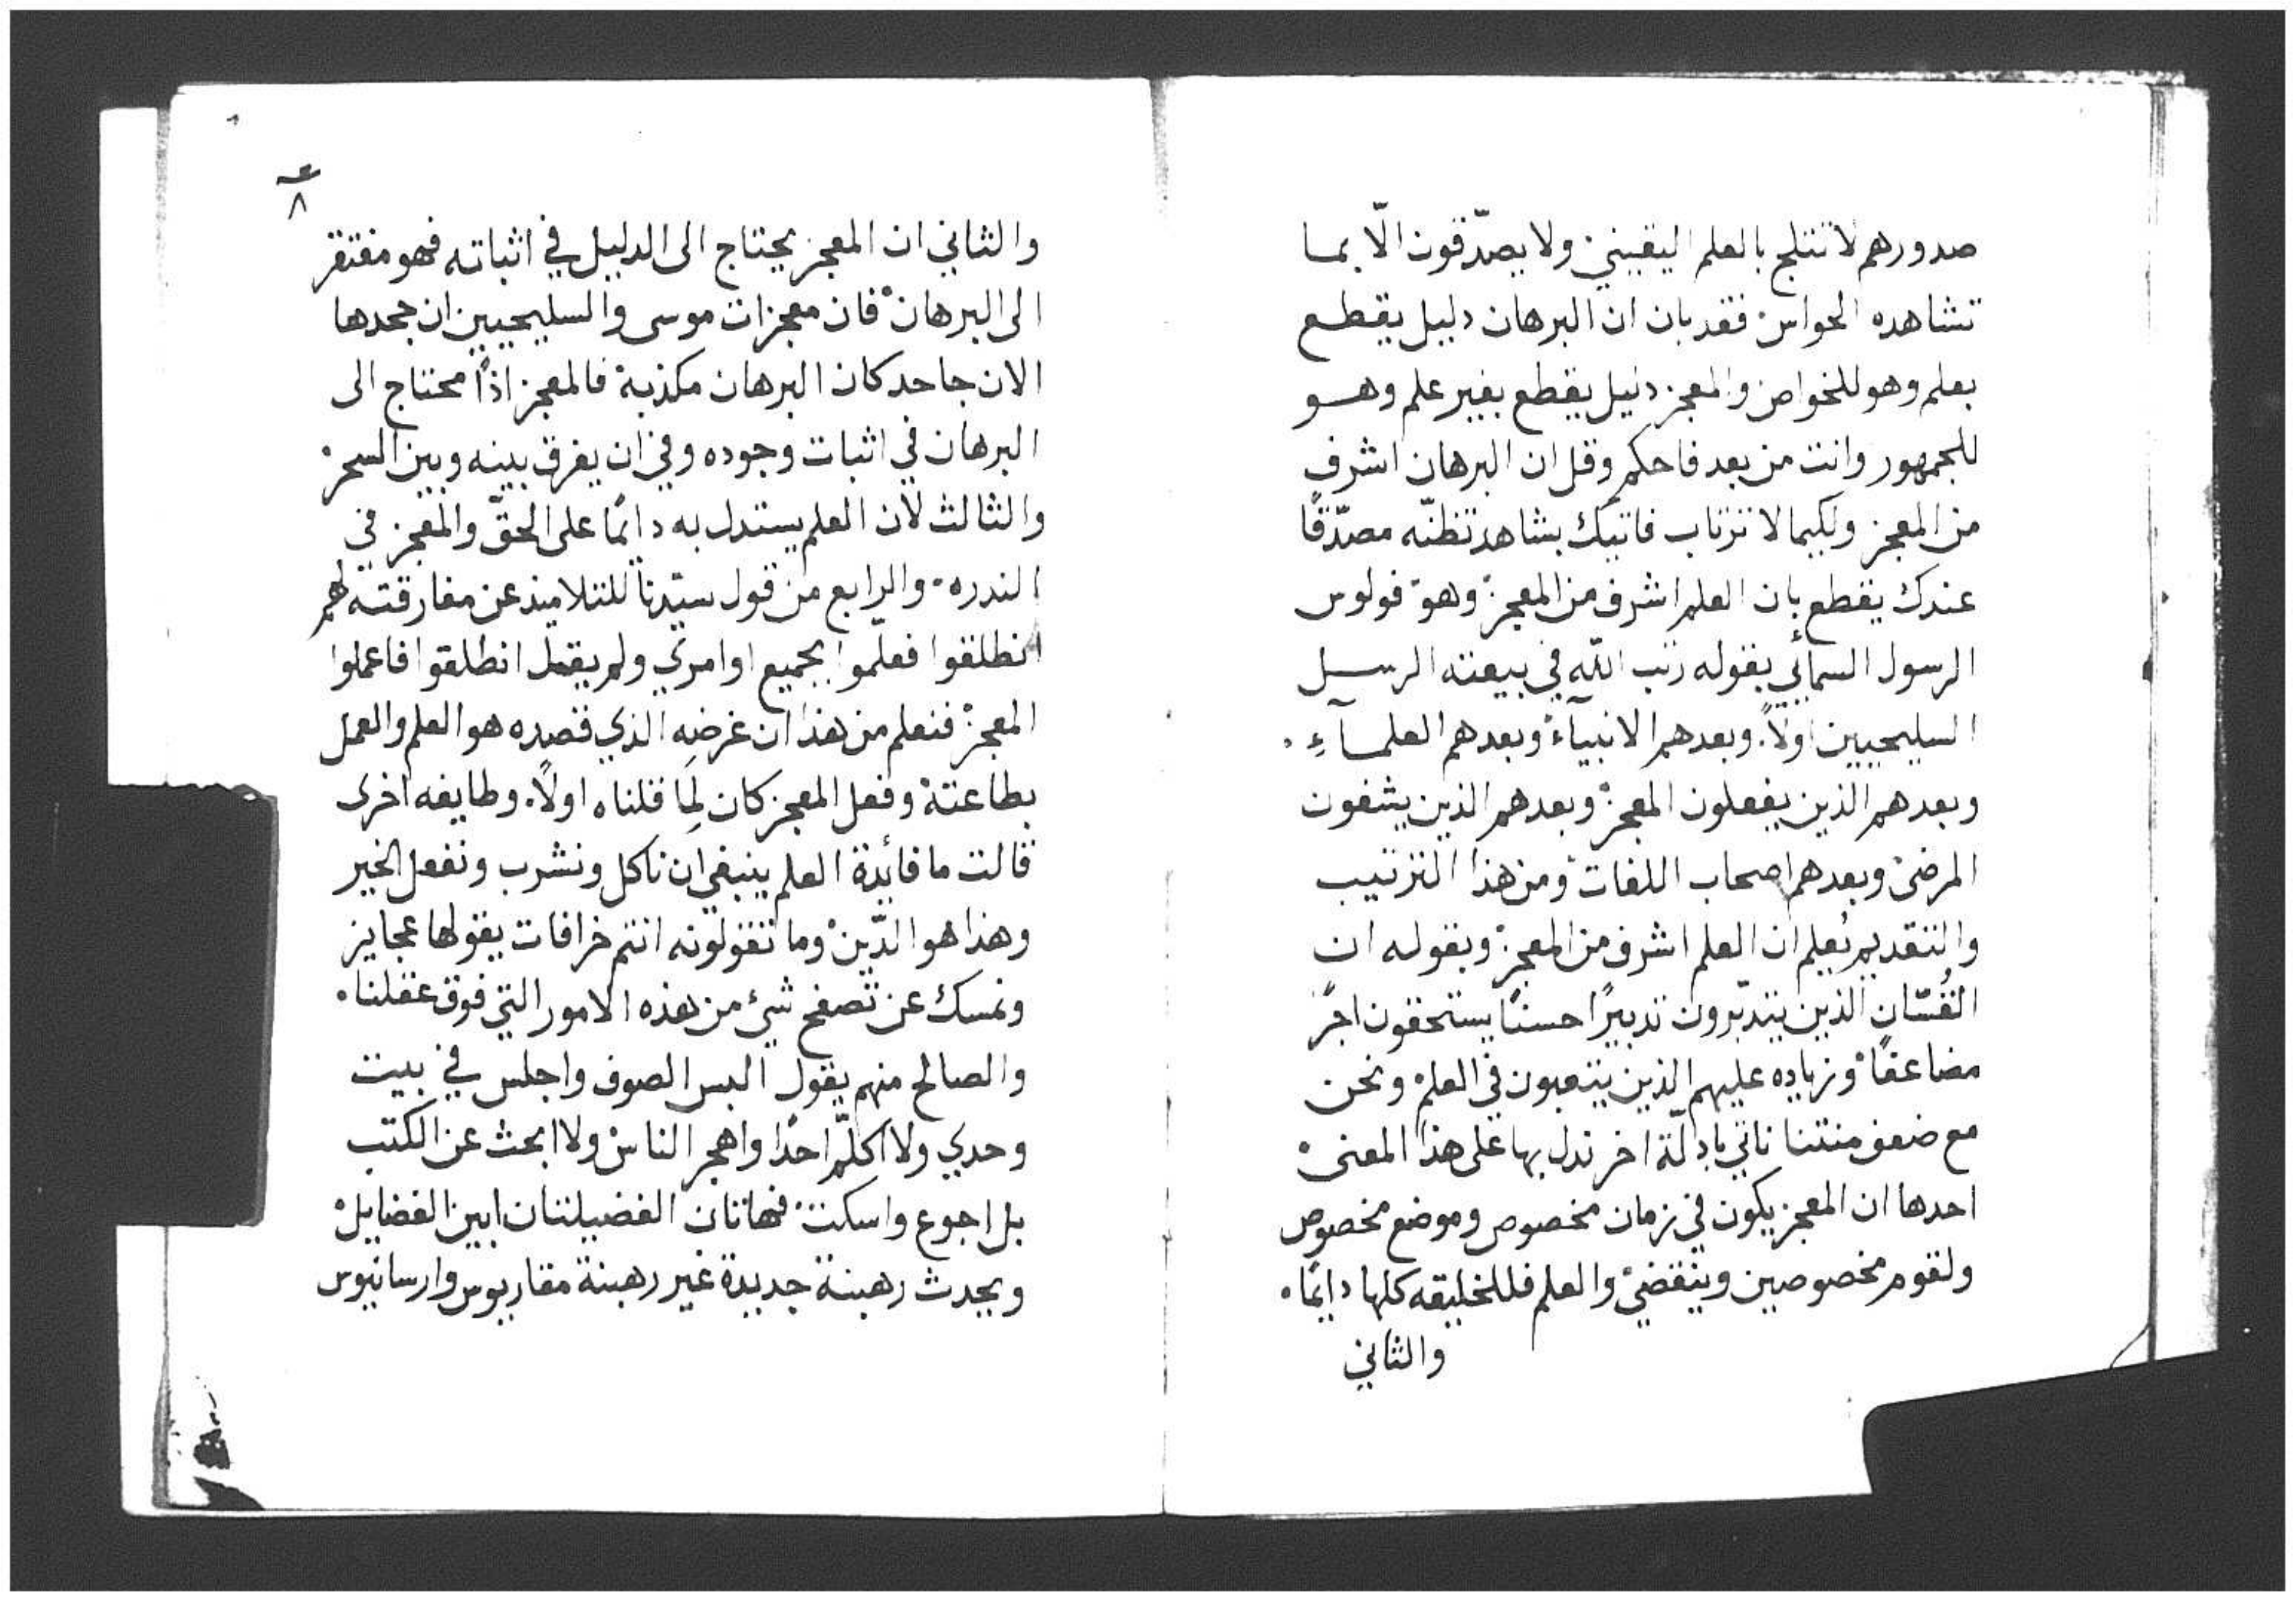 صدورهم لا تثلج بالعلم اليقيني ولا يصدّقون الّا بما
تشاهده الحواس فقد بان ان البرهان دليل يقطع
بعلم وهو للخواص والمعجز دليل يقطع بغير علم وهو
للجمهور وانت من بعد فاحكم وقل ان البرهان اشرف
من المعجز ولكيما لا ترتاب فاتيك بشاهد تظنّه مصدّقًا
عندك يقطع بان العلم اشرف من المعجز وهو فولوس
الرسول السمائي بقوله رتب اللّه في بيعته الرسل
السليحيين اولاً. وبعدهم الانبيآء وبعدهم العلمآءِ.
وبعدهم الذين يفعلون المعجز وبعدهم الذين يشفون
المرضى وبعدهم اصحاب اللغات ومن هذا الترتيب
والتقديم يُعلم ان العلم اشرف من المعجز وبقوله ان
القُسّان الذين يتدبّرون تدبيرًا حسنًا يستحقون اجرً
مضاعفًا وزياده عليهم الذين يتعبون في العلم ونحن
مع ضعف منتنا ناتي بادلّة اخر ندل بها على هذا المعنى
احدها ان المعجز يكون في زمان مخصوص وموضع مخصوص
ولقوم مخصوصين وينقضي والعلم فللخليقه كلها دايمًا.
والثاني
ع
٨
والثاني ان المعجز يحتاج الى الدليل في اثباته فهو مفتقر
الى البرهان فان معجزات موسى والسليحيين ان جحدها
الان جاحد كان البرهان مكذبة فالمعجز اذًا محتاج الى
البرهان في اثبات وجوده وفي ان يفرق بينه وبين السحر
والثالث لان العلم يستدل به دايمًا على الحقّ والمعجز في
الندره. والرابع من قول سيّدنا للتلاميذ عن مفارقته لهم
انطلقوا فعلّموا بجميع اوامري ولم يقل انطلقوا فاعملوا
المعجز فنعلم من هذا ان غرضه الذي قصده هو العلم والعمل
بطاعتة وفعل المعجز كان لِما قلناه اولاً. وطايفه اخرى
قالت ما فائدة العلم ينبغي ان ناكل ونشرب ونفعل الخير
وهذا هو الدّين وما تقولونه انتم خرافات يقولها عجايز
ونمسك عن تصفح شئ من هذه الامور التي فوق عقلنا.
والصالح منهم يقول البس الصوف واجلس في بيت
وحدي ولا اكلّم احدًا واهجر الناس ولا ابحث عن الكتب
بل اجوع واسكت فهاتان الفضيلتان ابين الفضايل
ويحدث رهبنة جديدة غير رهبنة مقاريوس وارسانيوس